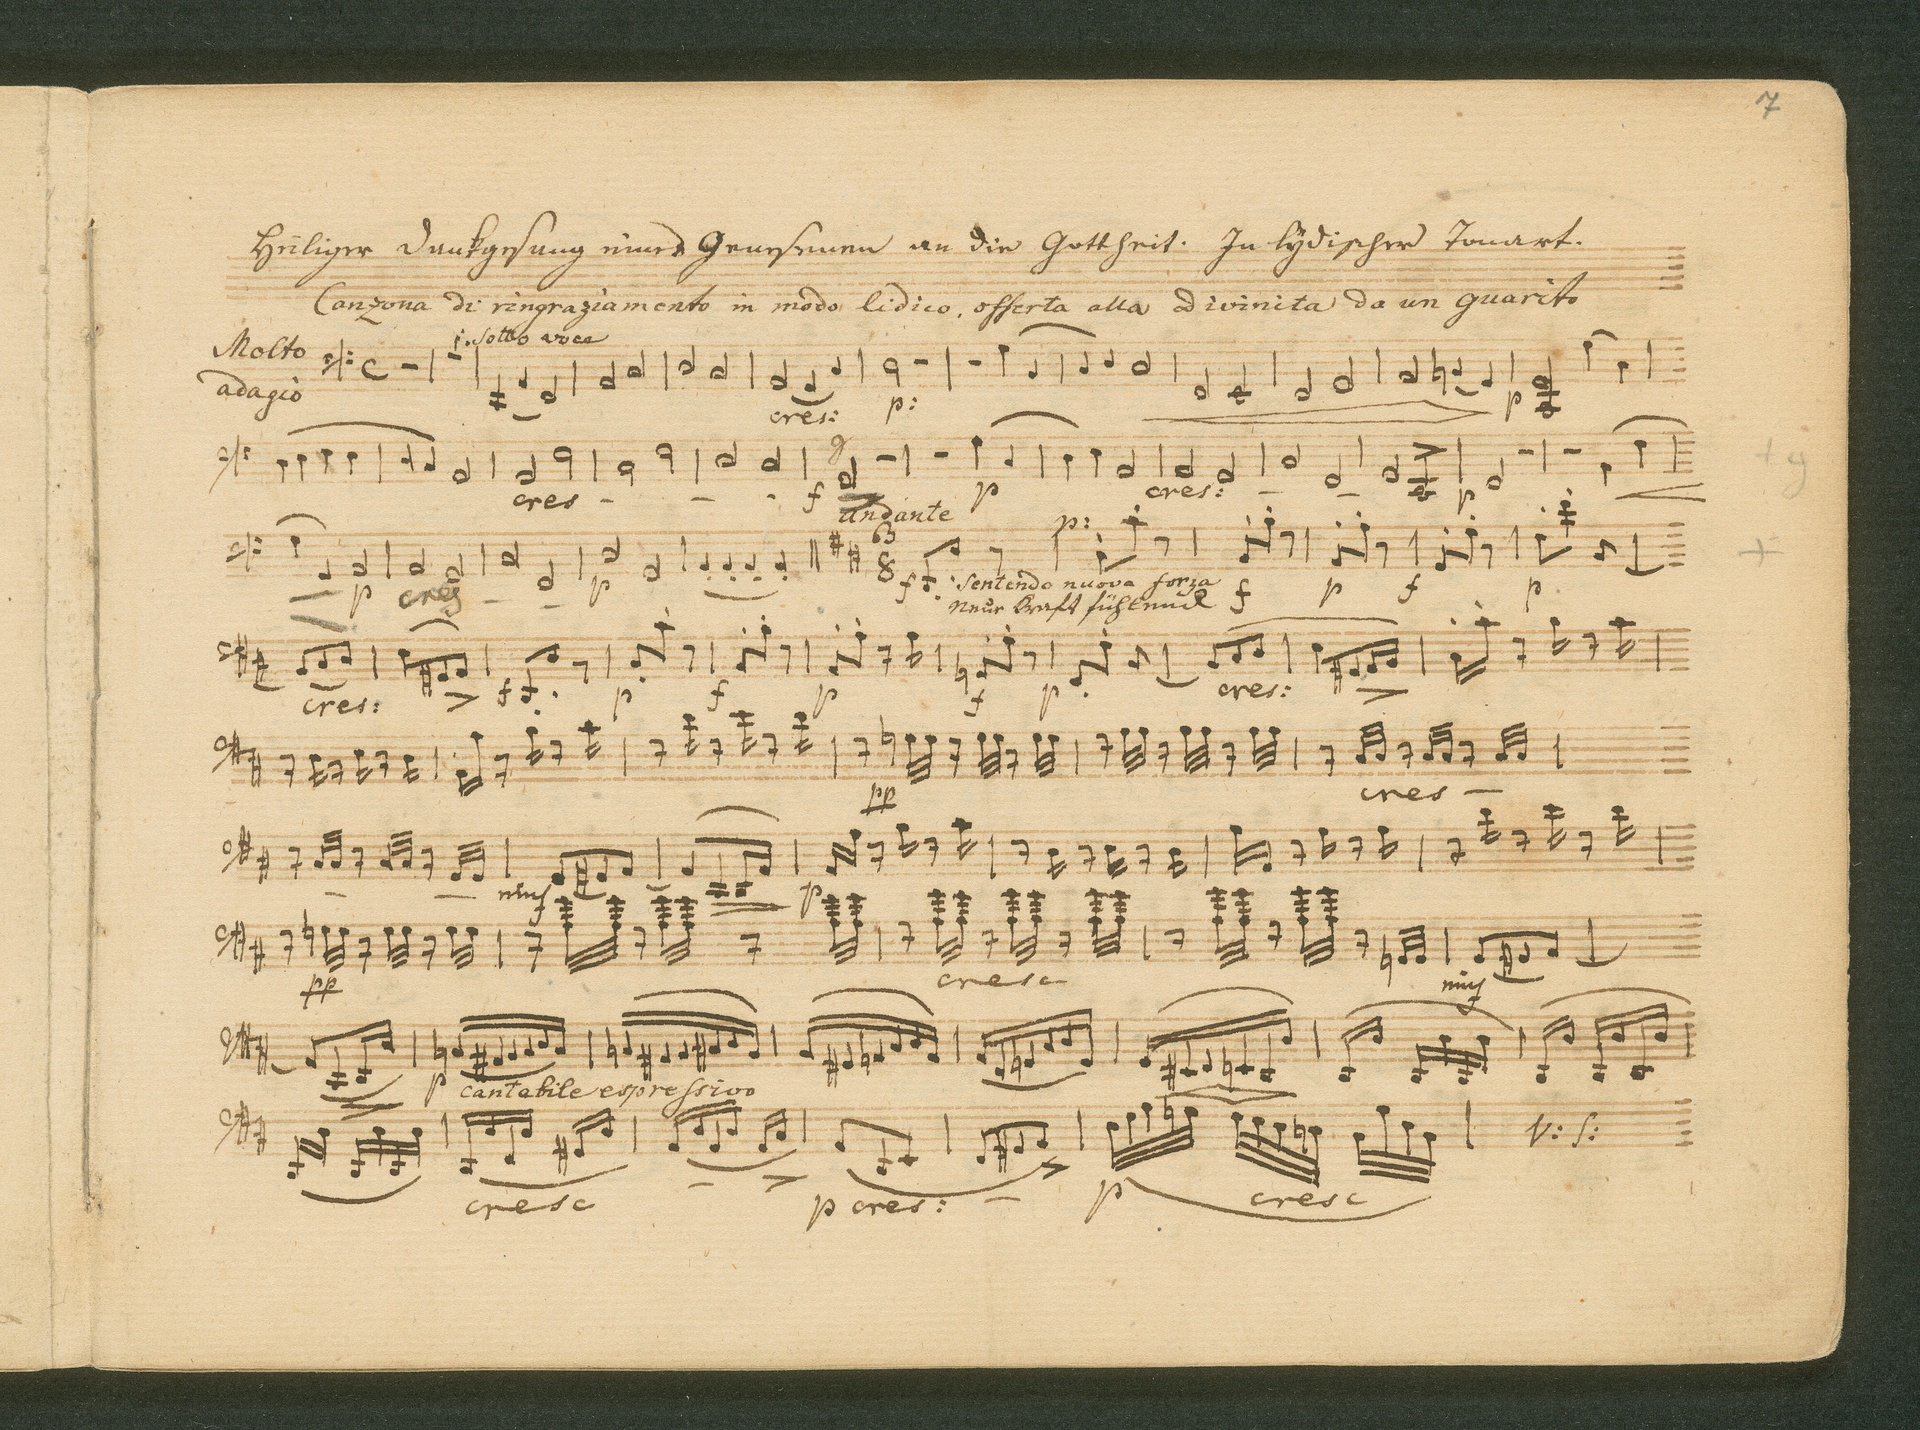 7
Heiliger Dankgesang eines Genesenen an die Gottheit. In lÿdischer Tonart.
Canzona di ringraziamento in modo lidico, offerta alla divinita da un guarito
Molto
adagio
sotto voce
cres: p: p
cres f p cres: p
andante
p cres p p:
f Sentendo nuova forza f p f p
Neue Kraft fühlend
cres: f p f p f p cres:
pp cres
p
pp cresc
p cantabile espressivo
cresc p cres: p cresc
V: S: